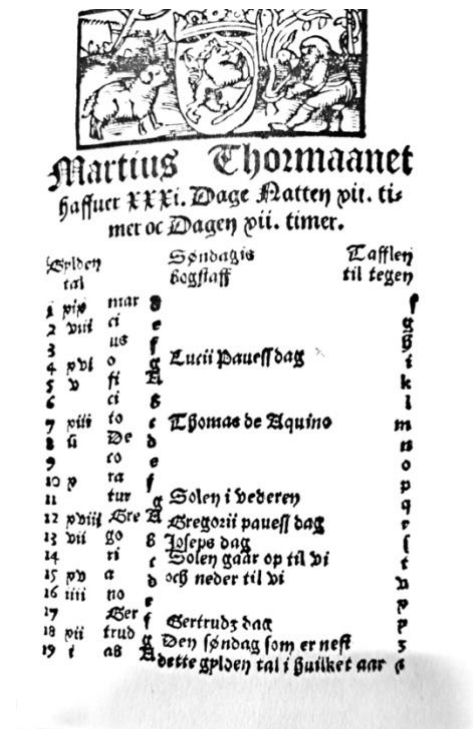 Martius Thormaanet
haffuer XXXi. Dage Natten xii. ti=
mer oc Dagen xii. timer.
Gylden Søndagis Tafflen
tal bogstaff til tegen
1 xix mar d f
2 viii ci e g
3 us f h
4 xvi o g Lucii Pauess dag i
5 v fi A k
6 ci b l
7 xiii to c Thomas de Aquino m
8 ii De d n
9 co e o
10 x ra f p
11 tur g Solen i vederen q
12 xviii Gre A Gregorii pauess dag r
13 vii go b Joseps dag s
14 ri c Solen gaar op til vi t
15 xv a d och neder til vi v
16 iiii no e x
17 Ger f Gertrudz dag y
18 xii trud g Den søndag som er nest z
19 i ab A dette gylden tal i huilket aar